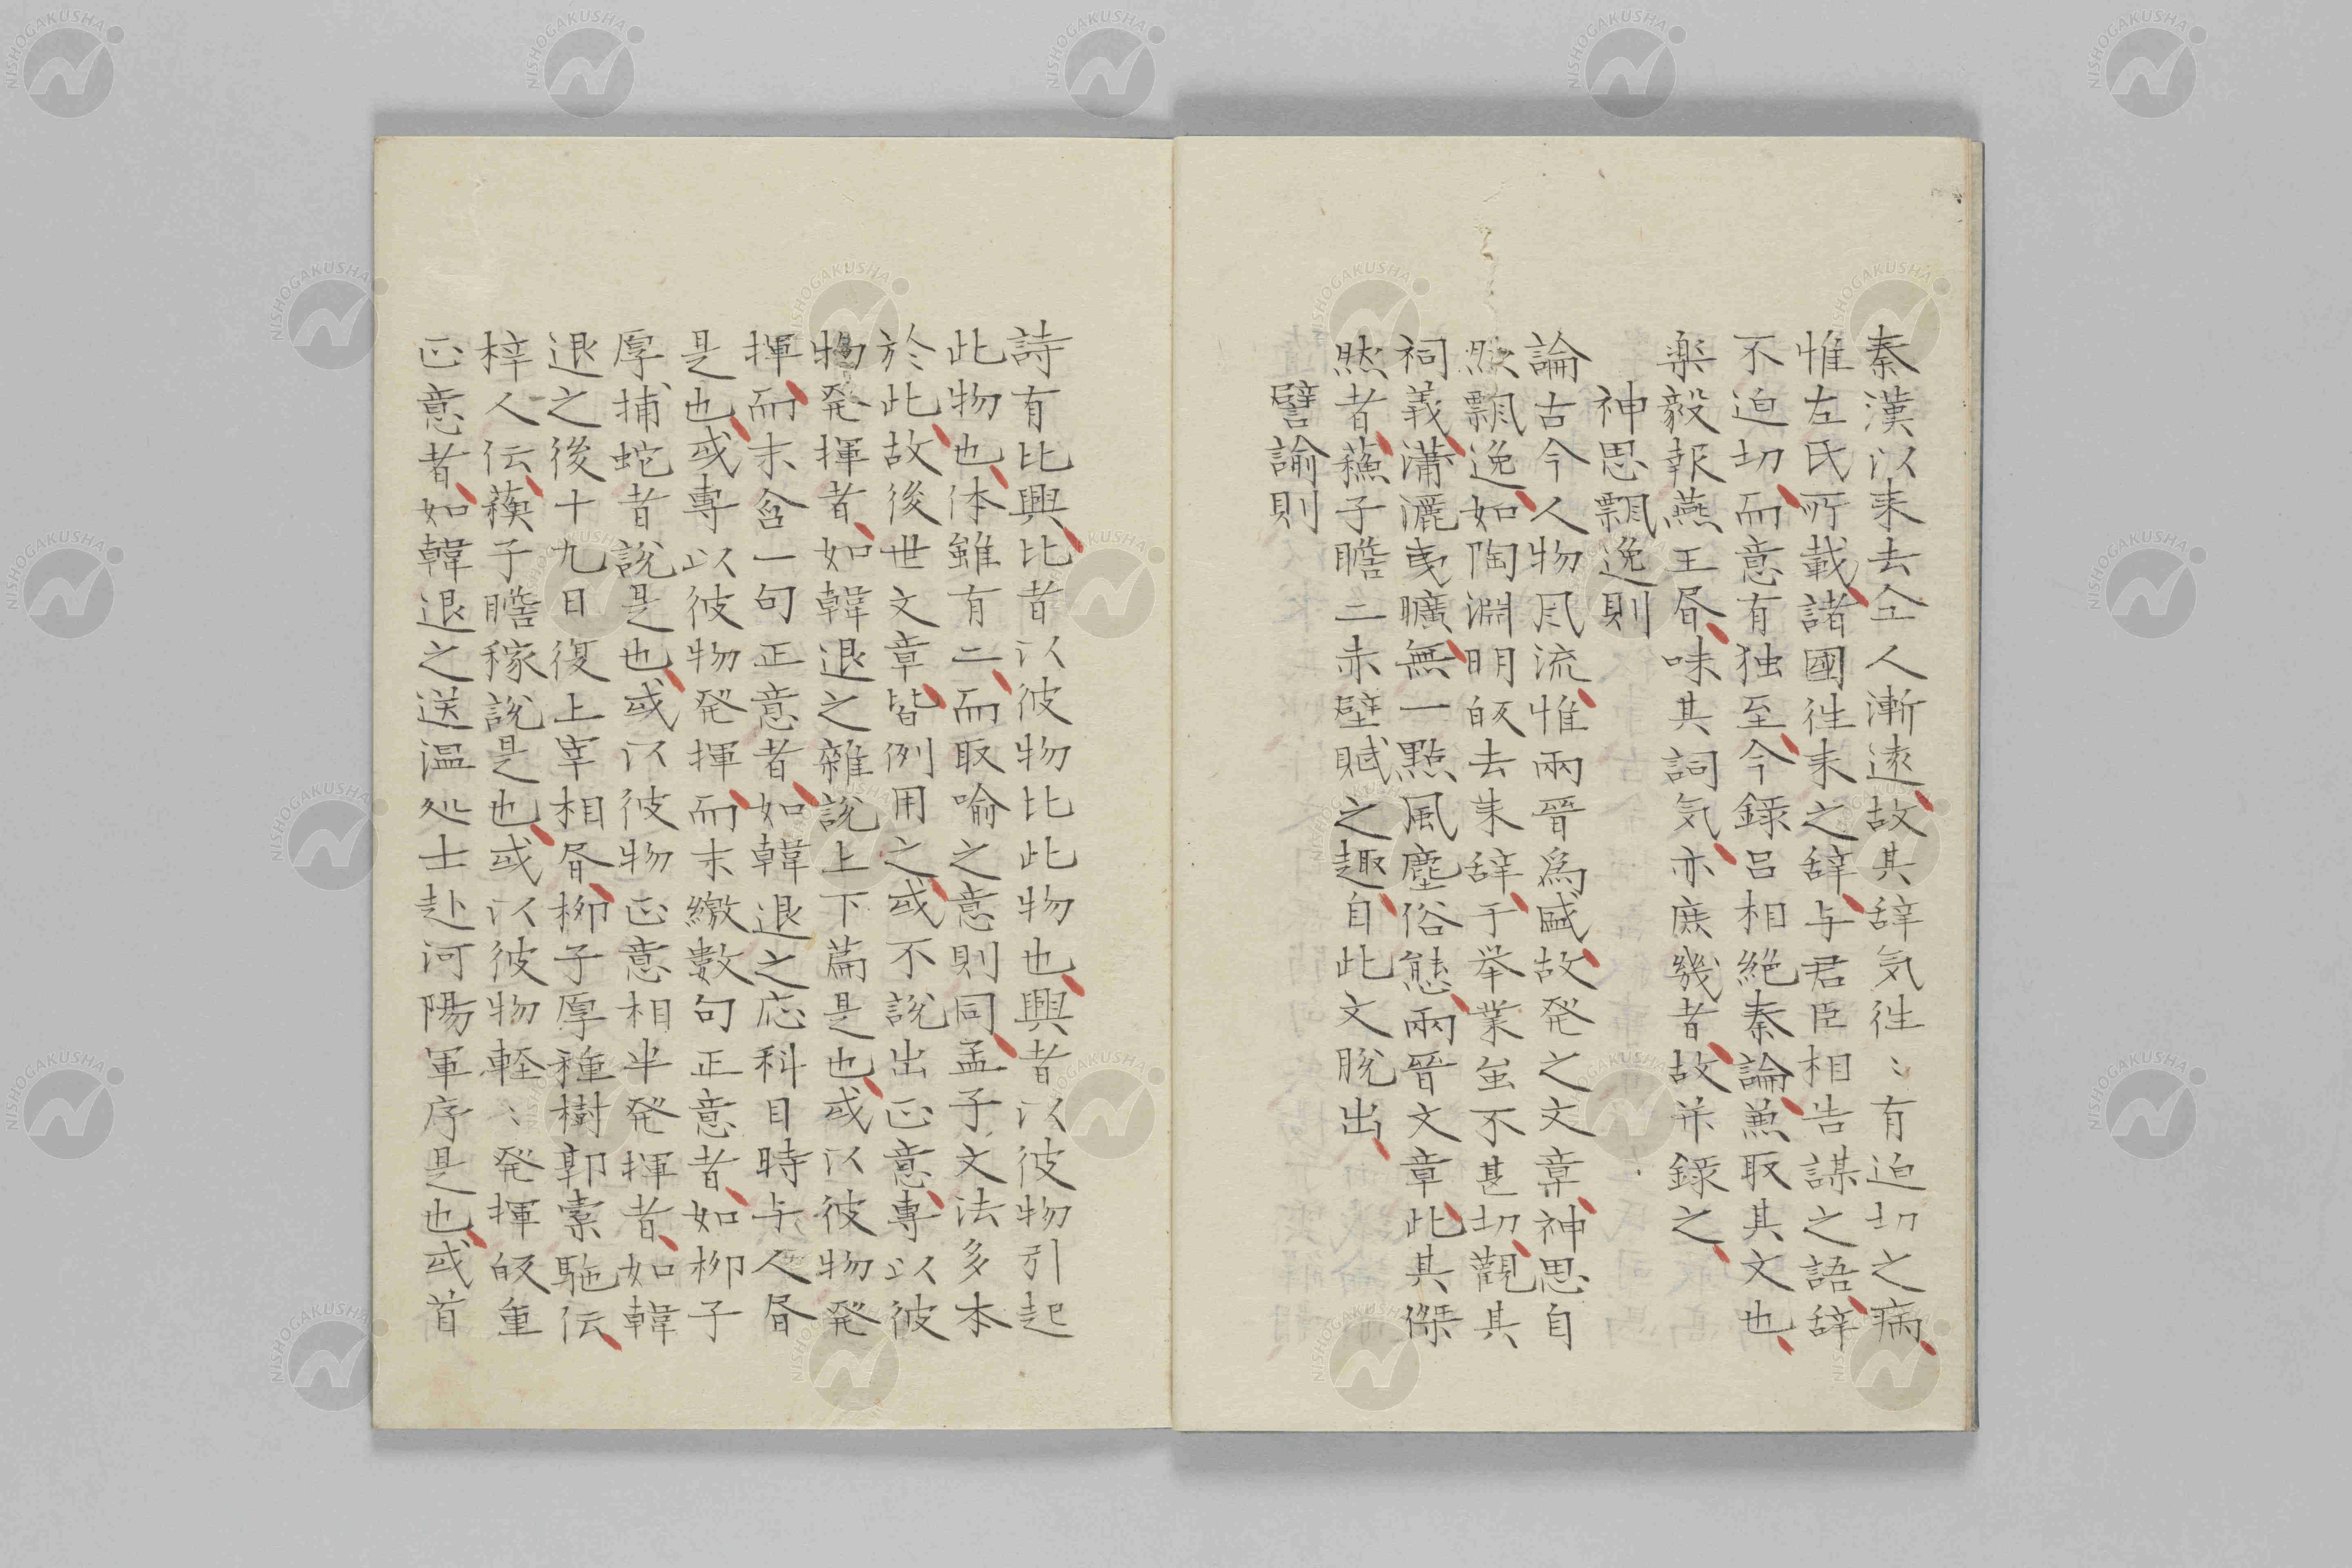 秦漢以来去仝人漸遠故其辞気徃〻有迫切之病
惟左氏所載諸國徃来之辞与君臣相告謀之語辞
不迫切而意有独至今録呂相絶秦論兼取其文也
楽毅報燕王昏味其詞気亦庶幾者故并録之
神思飄逸則
論古今人物風流惟兩晉為盛故発之文章神思自
然飄逸如陶淵明皈去来辞于举業虽不甚切觀其
祠義瀟灑曵曠無一點風塵俗態兩晉文章此其傑
然者蘓子瞻二赤壁賦之趣自此文脱出
譬諭則
詩有比興比者以彼物比此物也興者以彼物引起
此物也体雖有二而取喻之意則同孟子文法多本
於此故後世文章皆例用之或不說出正意專以彼
物発揮者如韓退之雜說上下篇是也或以彼物発
揮而末含一句正意者如韓退之応科目時与人昏
是也或專以彼物発揮而末繳數句正意者如柳子
厚捕蛇者說是也或以彼物正意相半発揮者如韓
退之後十九日復上宰相昏柳子厚種樹郭槖駞伝
梓人伝蘓子瞻稼說是也或以彼物軽〻発揮皈重
正意者如韓退之送温処士赴河陽軍序是也或首
NISHOGAKUSHA